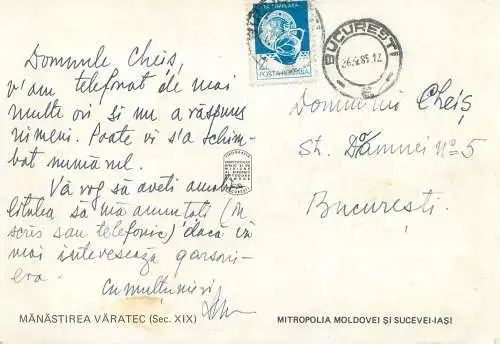 Domnule Cheiș,
v'am telefonat de mai
multe ori și nu a răspuns
nimeni. Poate vi s'a schim-
bat numărul.
Vă rog să aveți amabi-
litatea să mă anunțați (în
scris sau telefonic) dacă vă
mai interesează garsoni-
era.
Cu mulțumiri
POSTA ROMANA
BUCUREȘTI
Domnului Cheiș
St. Dămnei Nº 5
București.
MĂNĂSTIREA VĂRATEC (Sec. XIX)
MITROPOLIA MOLDOVEI ȘI SUCEVEI-IAȘI